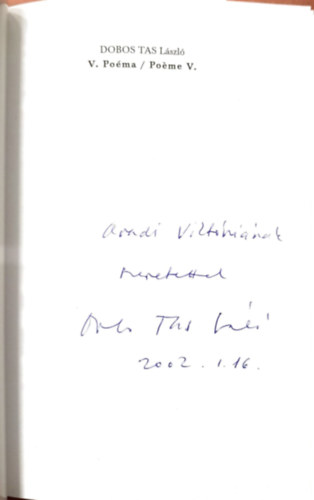 DOBOS TAS László
V. Poéma / Poème V.
Aradi Viktóriának
szeretettel
Dobos Tas László
2002. 1. 16.